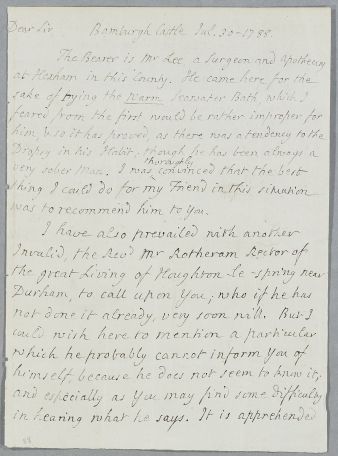 Dear Sir Bamburgh Castle Jul. 30 - 1788.
The Bearer is Mr Lee, a Surgeon and Apothecary
at Hexham in this County. He came here for the
sake of trying the warm Seawater Bath, which I
feared from the first would be rather improper for
him, & so it has proved, as there was a tendency to the
Dropsy in his Habit, though he has been always a
very sober Man. I was thoroughly convinced that the best
thing I could do for my Friend in this situation
was to recommend him to You.
I have also prevailed with another
Invalid, the Revd Mr Rotheram Rector of
the great Living of Houghton le-spring near
Durham, to call upon You, who if he has
not done it already, very soon will. But I
could wish here to mention a particular
which he probably cannot inform You of
himself, because he does not seem to know it;
and especially as You may find some difficulty
in hearing what he says. It is apprehended